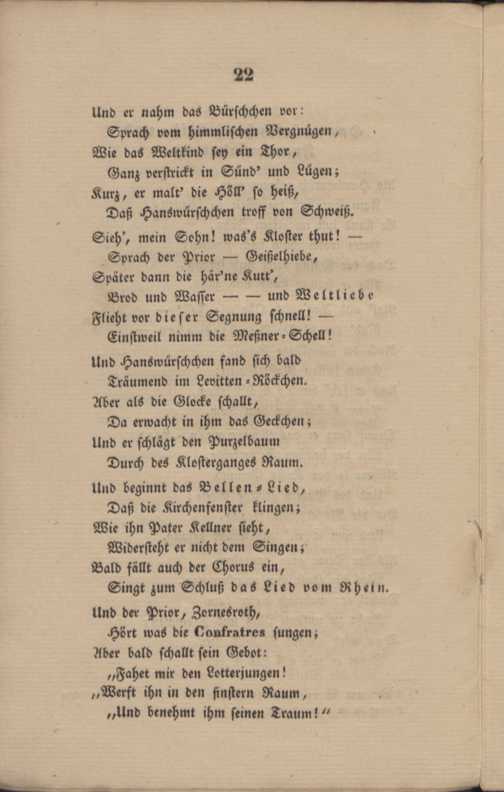 22
Und er nahm das Bürschchen vor:
Sprach vom himmlischen Vergnügen,
Wie das Weltkind sey ein Thor,
Ganz verstrickt in Sünd' und Lügen;
Kurz, er malt' die Höll' so heiß,
Daß Hanswürschchen troff von Schweiß.
Sieh', mein Sohn! was's Kloster thut! —
Sprach der Prior — Geißelhiebe,
Später dann die här'ne Kutt',
Brod und Wasser — — und Weltliebe
Flieht vor dieser Segnung schnell! —
Einstweil nimm die Meßner-Schell!
Und Hanswürschchen fand sich bald
Träumend im Levitten-Röckchen.
Aber als die Glocke schallt,
Da erwacht in ihm das Geckchen;
Und er schlägt den Purzelbaum
Durch des Klosterganges Raum.
Und beginnt das Bellen-Lied,
Daß die Kirchenfenster klingen;
Wie ihn Pater Kellner sieht,
Widersteht er nicht dem Singen;
Bald fällt auch der Chorus ein,
Singt zum Schluß das Lied vom Rhein.
Und der Prior, Zornesroth,
Hört was die Confratres sungen;
Aber bald schallt sein Gebot:
„Fahet mir den Lotterjungen!
„Werft ihn in den finstern Raum,
„Und benehmt ihm seinen Traum!“